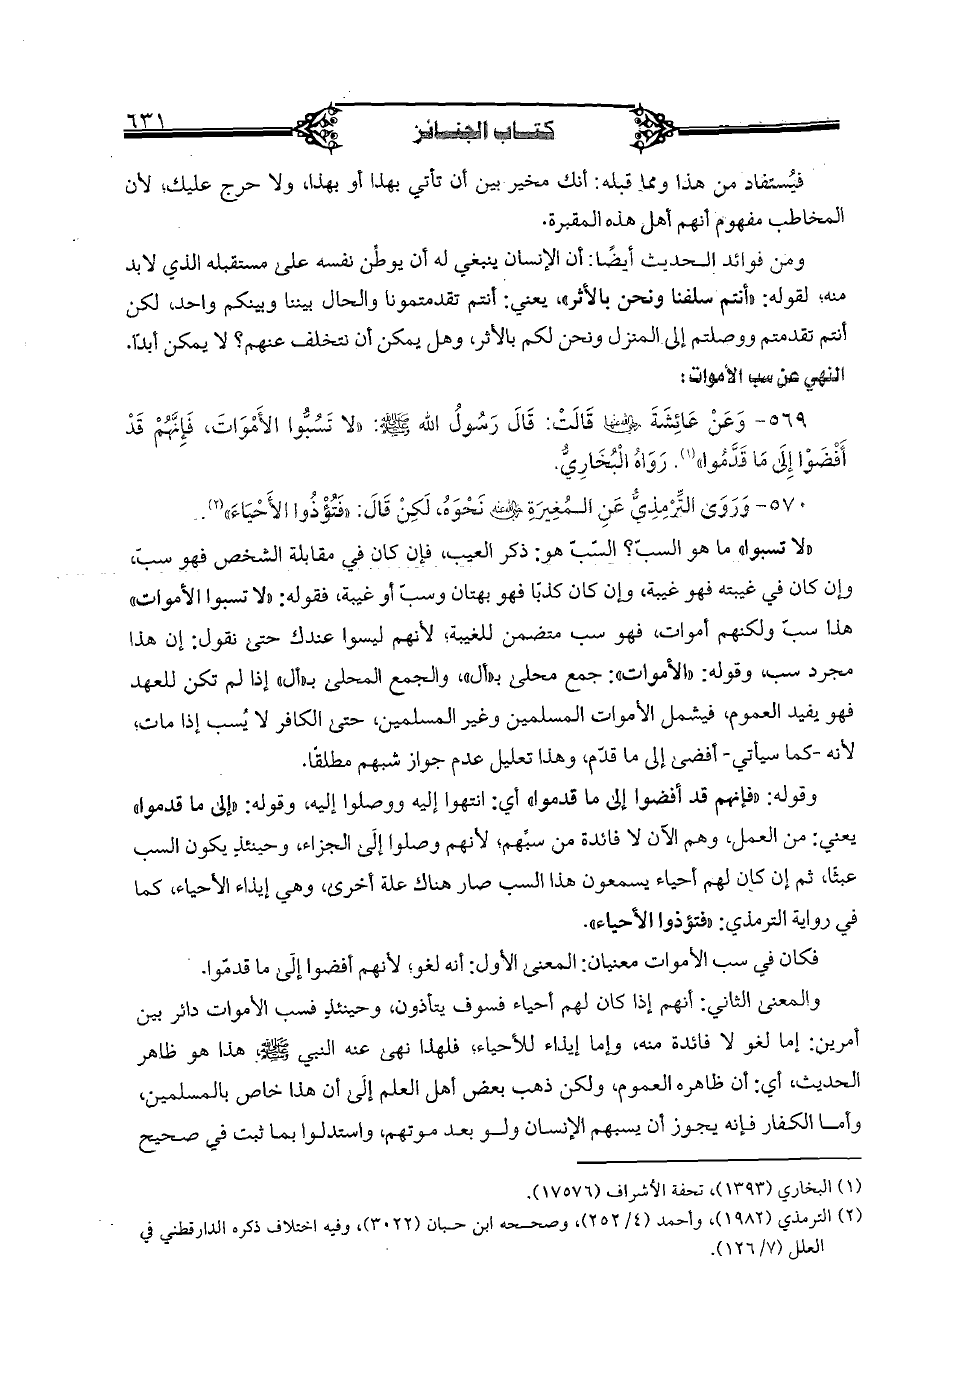 ٦٣١
كتاب الجنائز
فيُستفاد من هذا ومما قبله: أنك مخير بين أن تأتي بهذا أو بهذا، ولا حرج عليك؛ لأن
المخاطب مفهوم أنهم أهل هذه المقبرة.
ومن فوائد الحديث أيضًا: أن الإنسان ينبغي له أن يوطِّن نفسه على مستقبله الذي لابد
منه؛ لقوله: «أنتم سلفنا ونحن بالأثر»، يعني: أنتم تقدمتمونا والحال بيننا وبينكم واحد، لكن
أنتم تقدمتم ووصلتم إلى المنزل ونحن لكم بالأثر، وهل يمكن أن نتخلف عنهم؟ لا يمكن أبدًا.
النهي عن سب الأموات:
٥٦٩- وَعَنْ عَائِشَةَ رضي الله عنها قَالَتْ: قَالَ رَسُولُ الله ﷺ: «لا تَسُبُّوا الأَمْوَاتَ، فَإِنَّهُمْ قَدْ
أَفْضَوْا إِلَى مَا قَدَّمُوا»(١). رَوَاهُ الْبُخَارِيُّ.
٥٧٠- وَرَوَى التِّرْمِذِيُّ عَنِ المُغِيرَةِ رضي الله عنه نَحْوَهُ، لَكِنْ قَالَ: «فَتُؤْذُوا الأَحْيَاءَ»(٢)..
«لا تسبوا» ما هو السبّ؟ السّبّ هو: ذكر العيب، فإن كان في مقابلة الشخص فهو سبّ،
وإن كان في غيبته فهو غيبة، وإن كان كذبًا فهو بهتان وسبّ أو غيبة، فقوله: «لا تسبوا الأموات»
هذا سبّ ولكنهم أموات، فهو سب متضمن للغيبة؛ لأنهم ليسوا عندك حتى نقول: إن هذا
مجرد سب، وقوله: «الأموات»: جمع محلى بـ«أل»، والجمع المحلى بـ«أل» إذا لم تكن للعهد
فهو يفيد العموم، فيشمل الأموات المسلمين وغير المسلمين، حتى الكافر لا يُسب إذا مات؛
لأنه -كما سيأتي- أفضى إلى ما قدّم، وهذا تعليل عدم جواز شبهم مطلقًا.
وقوله: «فإنهم قد أفضوا إلى ما قدموا» أي: انتهوا إليه ووصلوا إليه، وقوله: «إلى ما قدموا»
يعني: من العمل، وهم الآن لا فائدة من سبِّهم؛ لأنهم وصلوا إلَى الجزاء، وحينئذٍ يكون السب
عبثًا، ثم إن كان لهم أحياء يسمعون هذا السب صار هناك علة أخرى، وهي إيذاء الأحياء، كما
في رواية الترمذي: «فتؤذوا الأحياء».
فكان في سب الأموات معنيان: المعنى الأول: أنه لغو؛ لأنهم أفضوا إلَى ما قدمّوا.
والمعنى الثاني: أنهم إذا كان لهم أحياء فسوف يتأذون، وحينئذٍ فسب الأموات دائر بين
أمرين: إما لغو لا فائدة منه، وإما إيذاء للأحياء؛ فلهذا نهى عنه النبي ﷺ، هذا هو ظاهر
الحديث، أي: أن ظاهره العموم، ولكن ذهب بعض أهل العلم إلَى أن هذا خاص بالمسلمين،
وأما الكفار فإنه يجوز أن يسبهم الإنسان ولو بعد موتهم، واستدلوا بما ثبت في صحيح
(١) البخاري (١٣٩٣)، تحفة الأشراف (١٧٥٧٦).
(٢) الترمذي (١٩٨٢)، وأحمد (٤/ ٢٥٢)، وصححه ابن حبان (٣٠٢٢)، وفيه اختلاف ذكره الدارقطني في
العلل (٧/ ١٢٦).